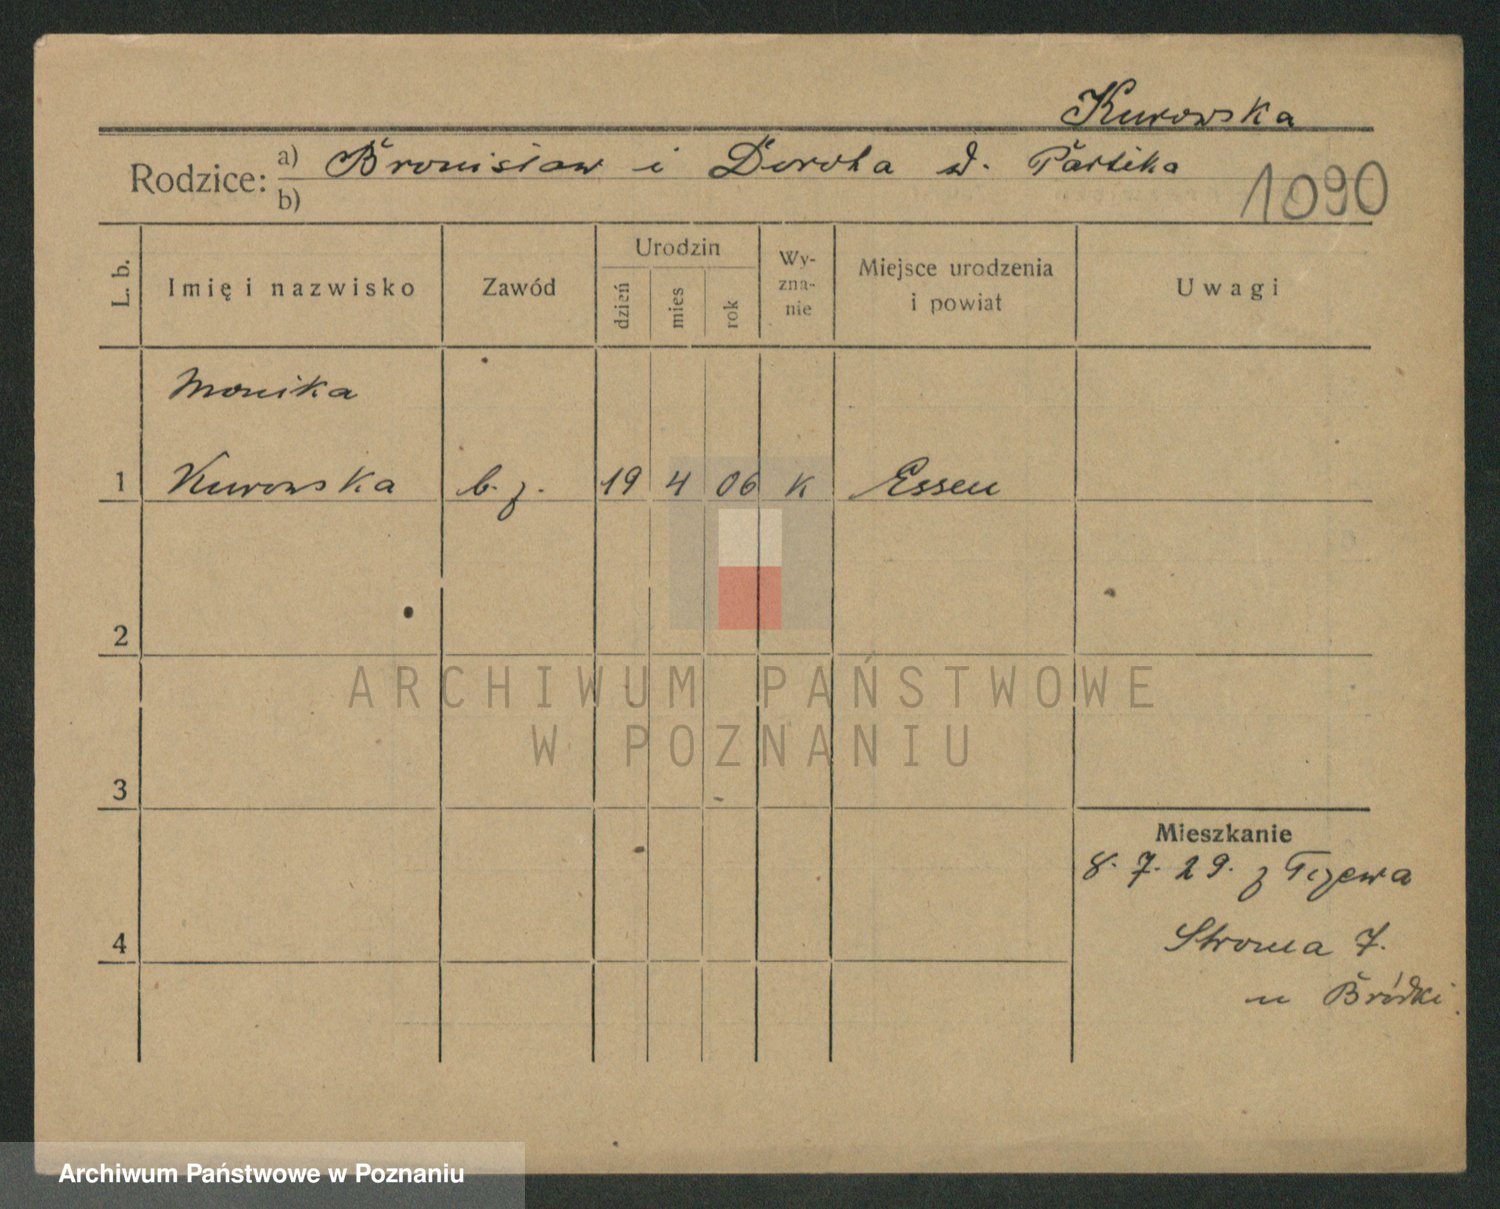 Kurowska
Rodzice: a) Bronisław i Dorota d. Partika
b)
1090
L. b.
Imię i nazwisko
Zawód
Urodzin
dzień
mies
rok
Wy-
zna-
nie
Miejsce urodzenia
i powiat
Uwagi
Monika
1 Kurowska b. z. 19 4 06 K Essen
2
3
4
Mieszkanie
8. 7. 29. z Tczewa
Stroma 7.
u Bródki
ARCHIWUM PAŃSTWOWE
W POZNANIU
Archiwum Państwowe w Poznaniu